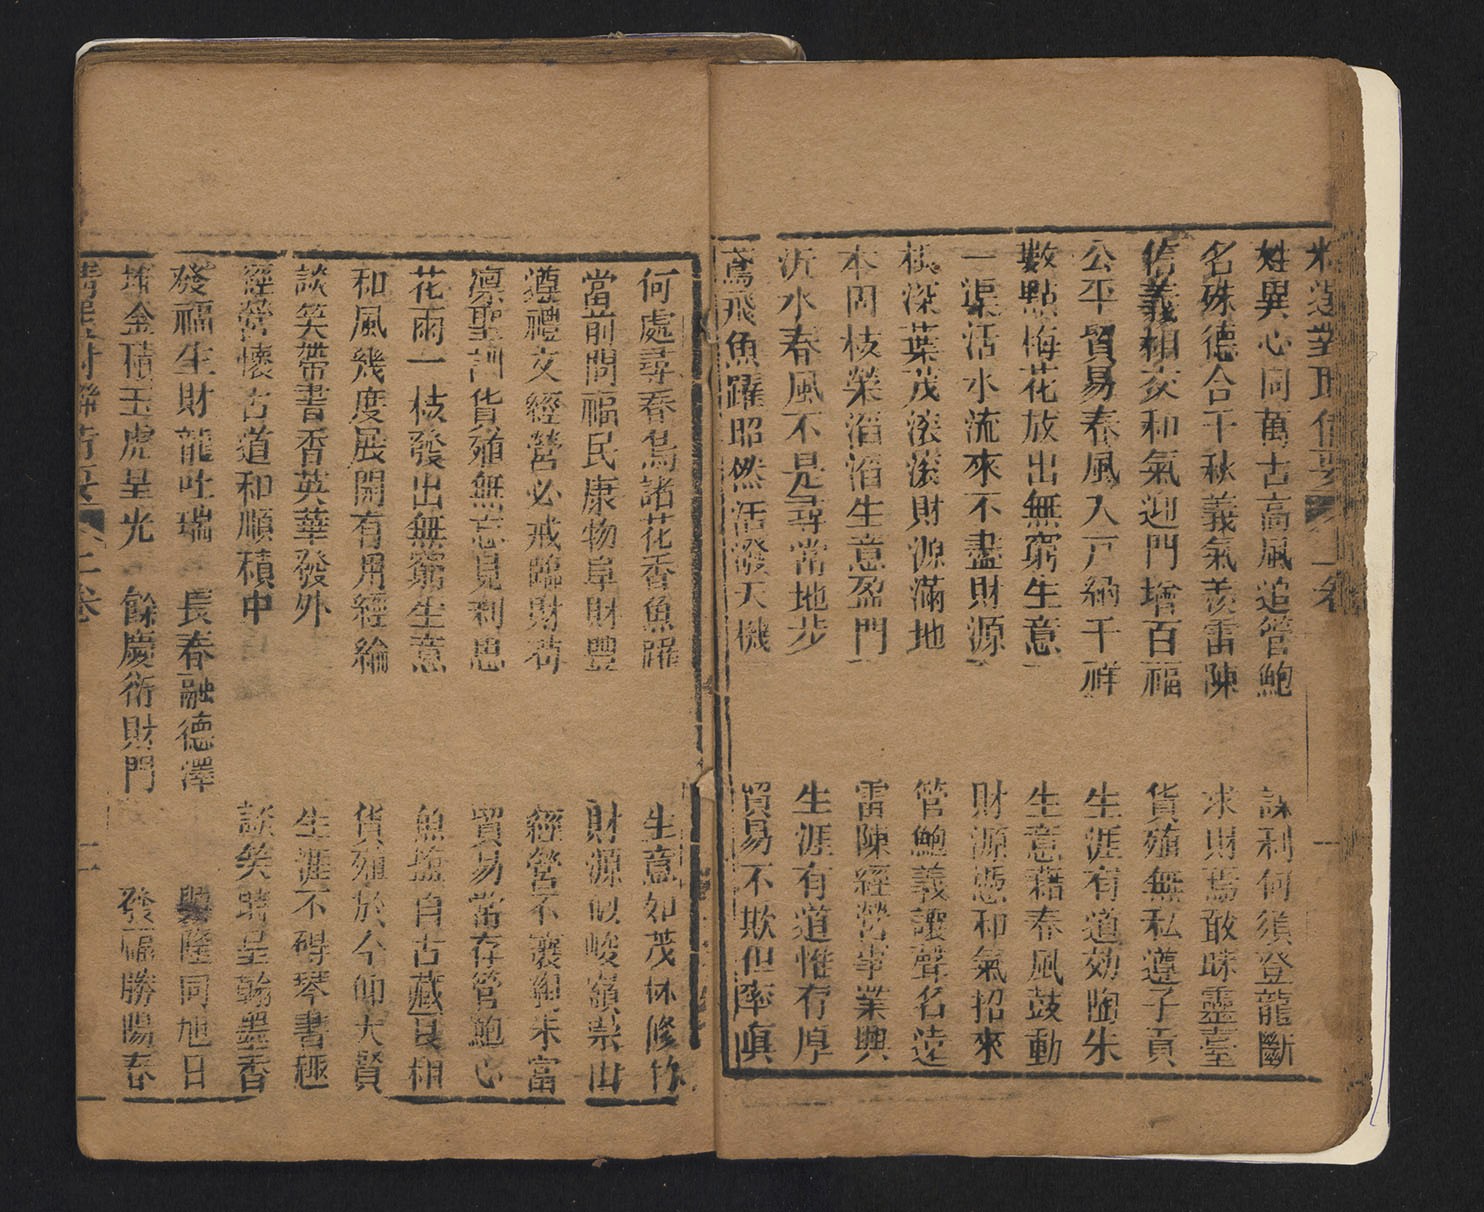 姓異心同萬古高風追管鮑　謀利何須登龍斷
名殊德合千秋義氣羨雷陳　求財焉敢昧靈臺
信義相交和氣迎門增百福　貨殖無私遵子貢
公平貿易春風入戸納千祥　生涯有道効陶朱
數點梅花放出無窮生意　生意藉春風鼓動
一渠活水流來不盡財源　財源憑和氣招來
根深葉茂滚滚財源滿地　管鮑義讓聲名遠
本固枝榮滔滔生意盈門　雷陳經營事業興
沂水春風不是尋常地步　生涯有道惟存厚
鳶飛魚躍昭然活潑天機　貿易不欺但率眞
何處尋春鳥諸花香魚躍　生意如茂林修竹
當前問福民康物阜財豐　財源似峻嶺崇山
遵禮文經營必戒臨財苟　經營不讓細未富
凛聖訓貨殖無忘見利思　貿易當存管鮑心
花雨一枝發出無窮生意　魚塩自古藏良相
和風幾度展開有用經綸　貨殖於今仰大賢
談笑帶書香英華發外　生涯不碍琴書趣
經營懷古道和順積中　談笑時呈翰墨香
發福生財龍吐瑞　長春融德澤　興隆同旭日
堆金積玉虎呈光　餘慶衍財門　發福勝陽春
二